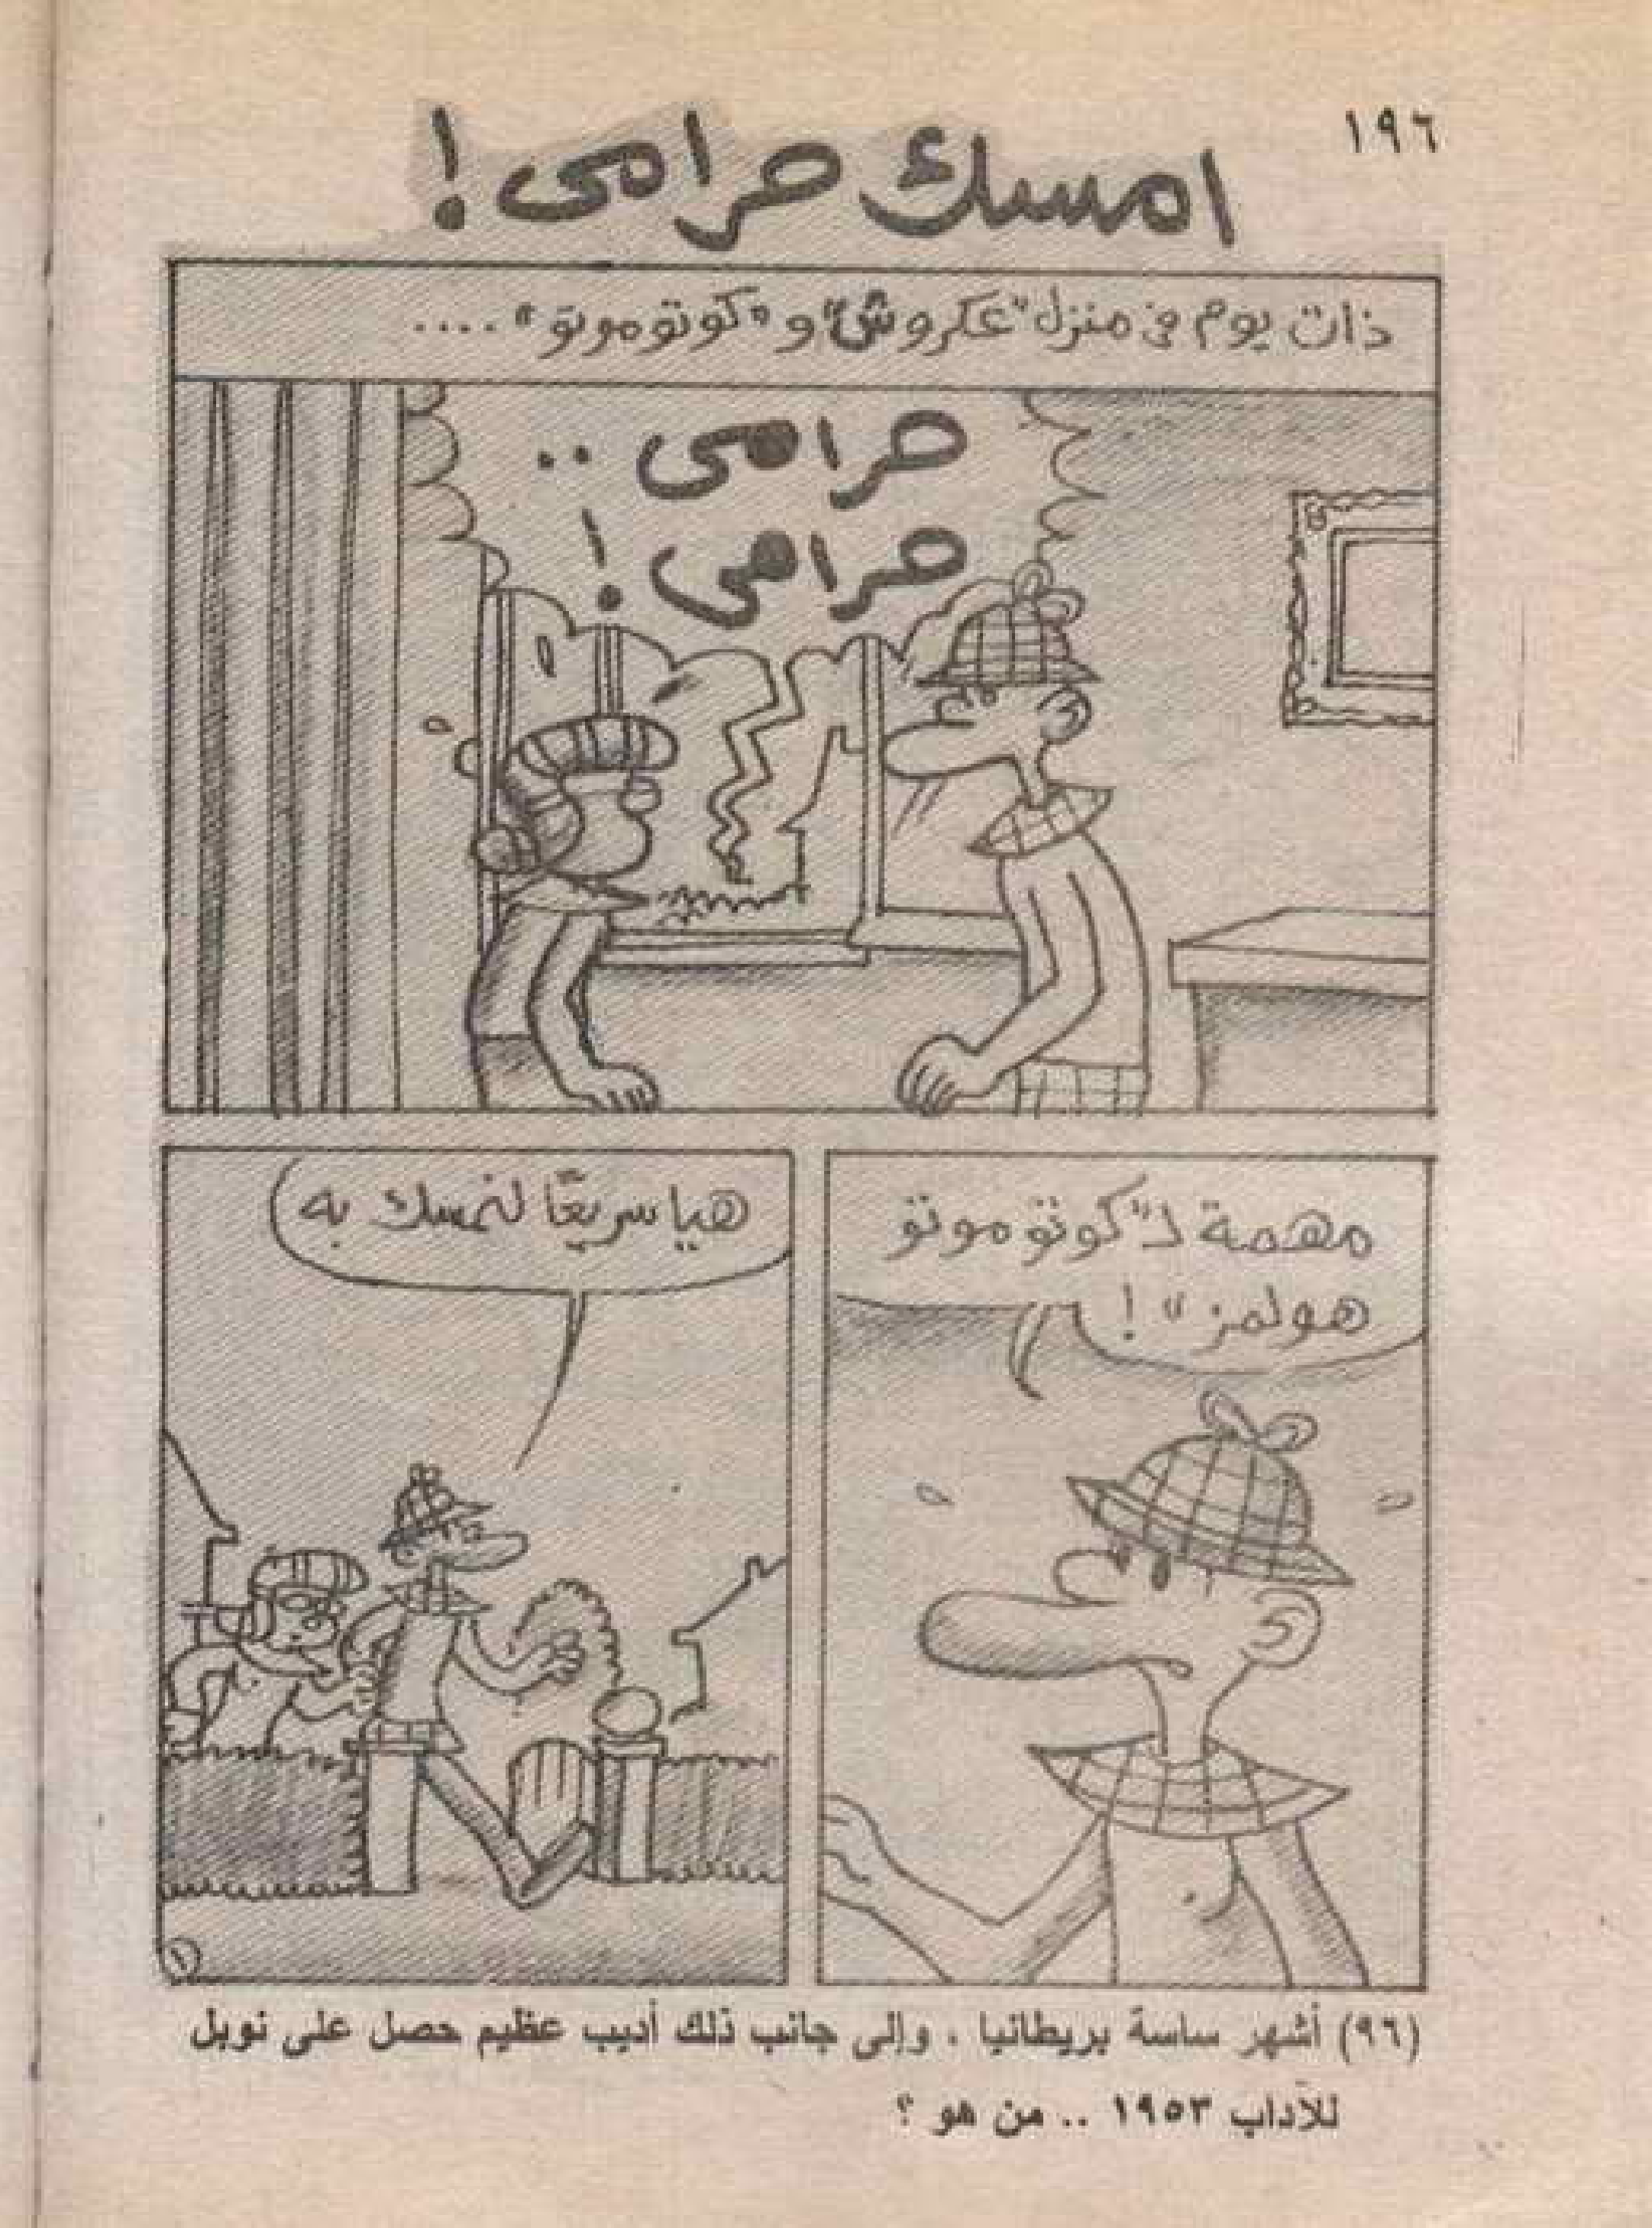 ١٩٦
امسك حرامى !
ذات يوم فى منزل "عكروش" و "كوتوموتو" ....
حرامى ..
حرامى !
مهمة لـ "كوتوموتو
هولمز" !
هيا سريعًا لنمسك به
١
(٩٦) أشهر ساسة بريطانيا ، وإلى جانب ذلك أديب عظيم حصل على نوبل
للآداب ١٩٥٣ .. من هو ؟